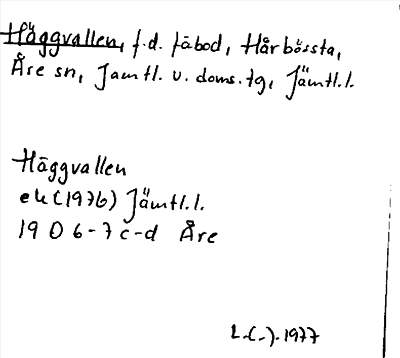 Häggvallen, f.d. fäbod, Hårbörsta,
Åre sn, Jämtl. v. doms. tg, Jämtl.l.
Häggvallen
ek (1976) Jämtl.l.
19 D 6-7 c-d Åre
L.(-). 1977